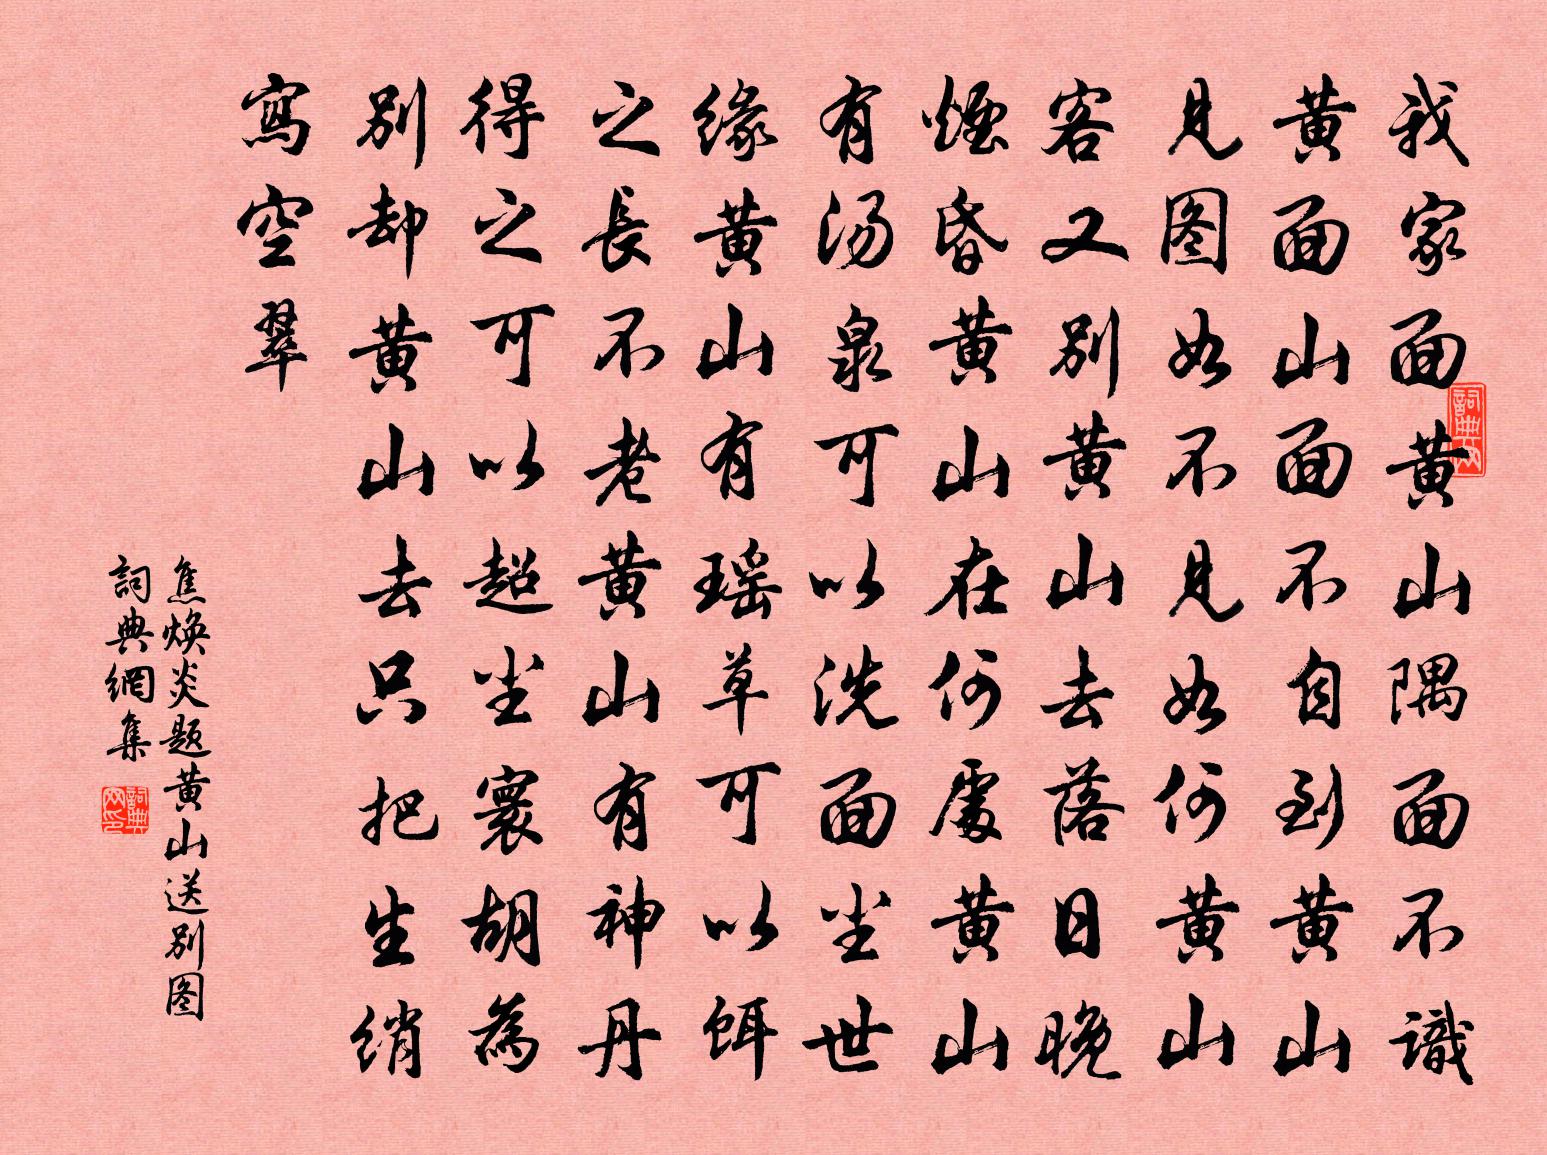 我家面黄山隅面不識
黄面山面不自到黄山
見图如不見如何黄山
客又别黄山去落日晚
煙昏黄山在何處黄山
有汤泉可以洗面尘世
缘黄山有瑶草可以饵
之長不老黄山有神丹
得之可以超尘寰胡為
别却黄山去只把生绡
寫空翠
焦焕炎题黄山送别图
詞典網集
詞典网
詞典网印